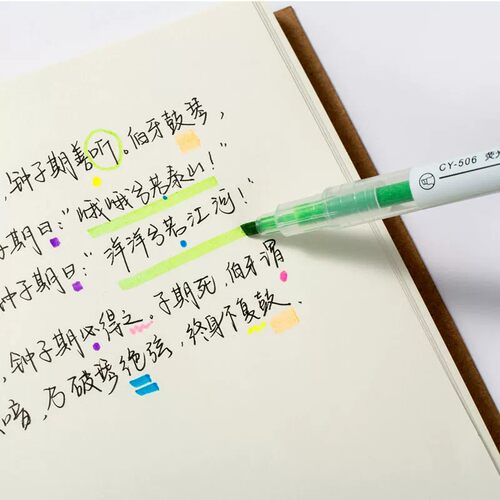 ,钟子期善听。伯牙鼓琴,
子期曰:“峨峨兮若泰山!”
钟子期曰:“洋洋兮若江河!”
,钟子期必得之。子期死,伯牙谓
音,乃破琴绝弦,终身不复鼓.
CY-506 荧